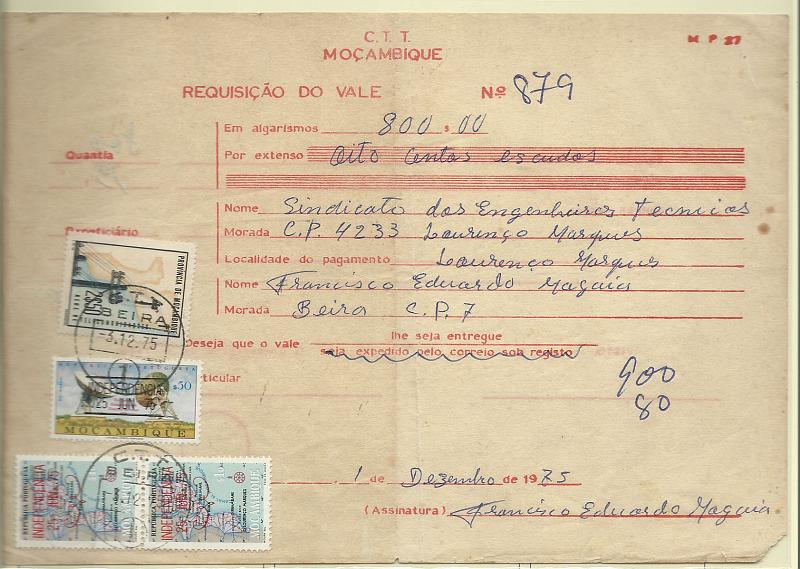 C. T. T.
MOÇAMBIQUE
M P 27
REQUISIÇÃO DO VALE Nº 879
Quantia
Em algarismos 800 $ 00
Por extenso Oito centos escudos
Beneficiário
Nome Sindicato dos Engenheiros Tecnicos
Morada C.P. 4233 Lourenço Marques
Localidade do pagamento Lourenço Marques
Nome Francisco Eduardo Magaia
Morada Beira C.P. 7
Deseja que o vale lhe seja entregue
seja expedido pelo correio sob registo
900
80
1 de Dezembro de 1975
(Assinatura) Francisco Eduardo Magaia
PROVÍNCIA DE MOÇAMBIQUE
2$50
BEIRA
-3.12.75
1
INDEPENDÊNCIA
25 JUN 75
$50
MOÇAMBIQUE
C.T.T.
REPÚBLICA PORTUGUESA
INDEPENDÊNCIA
25 JUN 75
MOÇAMBIQUE
REPÚBLICA PORTUGUESA
INDEPENDÊNCIA
25 JUN 75
MOÇAMBIQUE